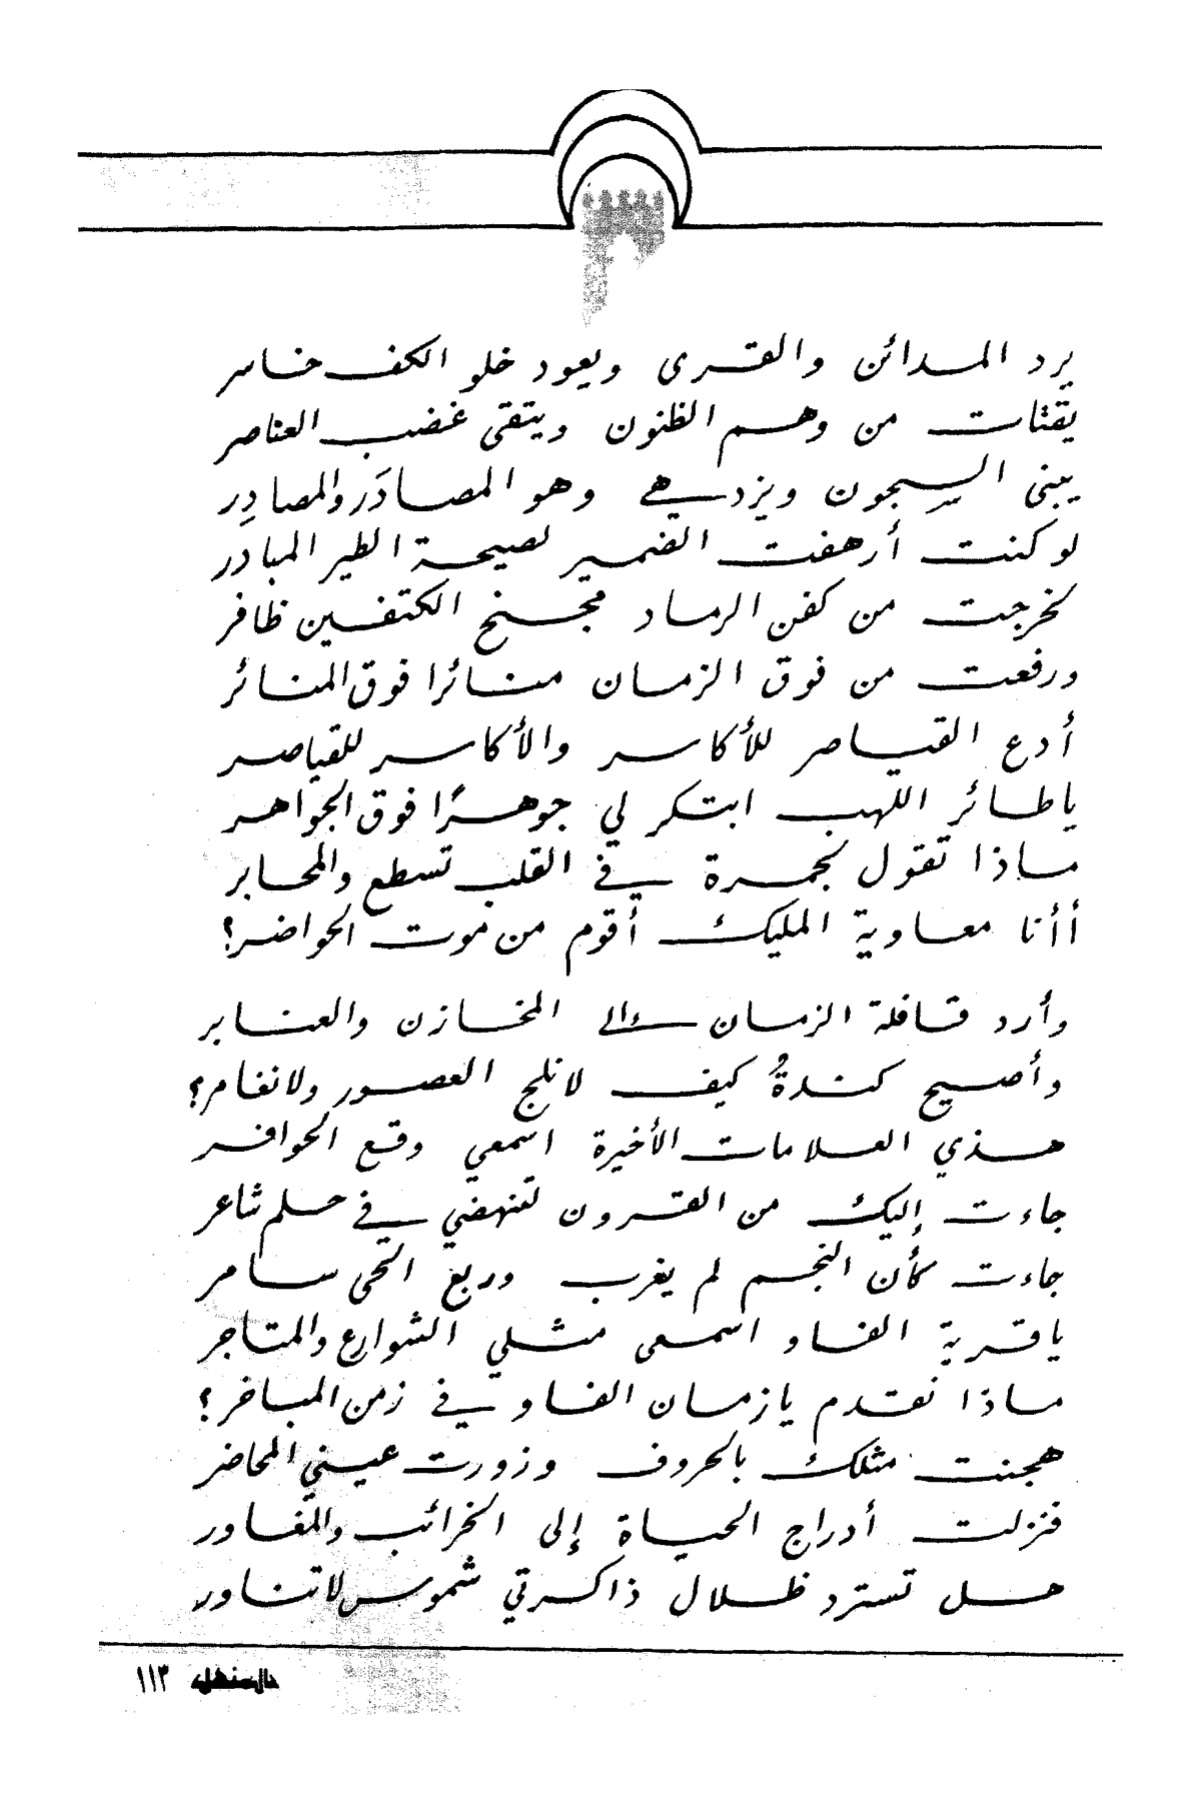 يرد المدائن والقرى ويعود خلو الكف خاسر
يقتات من وهم الظنون ويتقى غضب العناصر
يبنى السجون ويزدهي وهو المصادَر والمصادِر
لو كنت أرهفت الضمير لصيحة الطير المبادر
لخرجت من كفن الرماد مجنح الكتفين ظافر
ورفعت من فوق الزمان منائرا فوق المنائر
أدع القياصر للأكاسر والأكاسر للقياصر
ياطائر اللهب ابتكر لي جوهرًا فوق الجواهر
ماذا تقول لجمرة في القلب تسطع والمحابر
أأنا معاوية المليك أقوم من موت الحواضر؟
وأرد قافلة الزمان إلى المخازن والعنابر
وأصيح كندةُ كيف لا نلج العصور ولا نغامر؟
هذي العلامات الأخيرة اسمعي وقع الحوافر
جاءت إليك من القرون لتنهضي في حلم شاعر
جاءت كأن النجم لم يغرب وربع الحى سامر
ياقرية الفاو اسمعى مثلي الشوارع والمتاجر
ماذا نقدم يازمان الفاو في زمن المباخر؟
هجنت مثلك بالحروف وزورت عيني المحاضر
فنزلت أدراج الحياة إلى الخرائب والمغاور
هل تسترد ظلال ذاكرتي شموس لا تناور
المنهل ١١٣